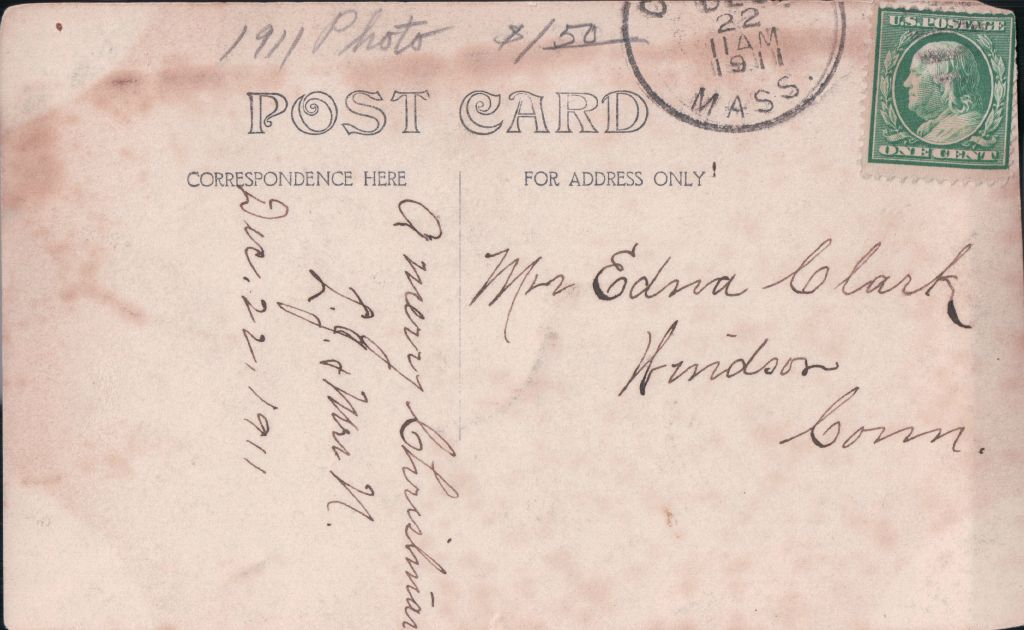 1911 Photo $1 50
DEC.
22
11AM
1911
MASS.
U.S. POSTAGE
ONE CENT
POST CARD
CORRESPONDENCE HERE
FOR ADDRESS ONLY
A merry Christmas
L. J. & Mrs N.
Dec. 22, 1911
Mrs Edna Clark
Windsor
Conn.